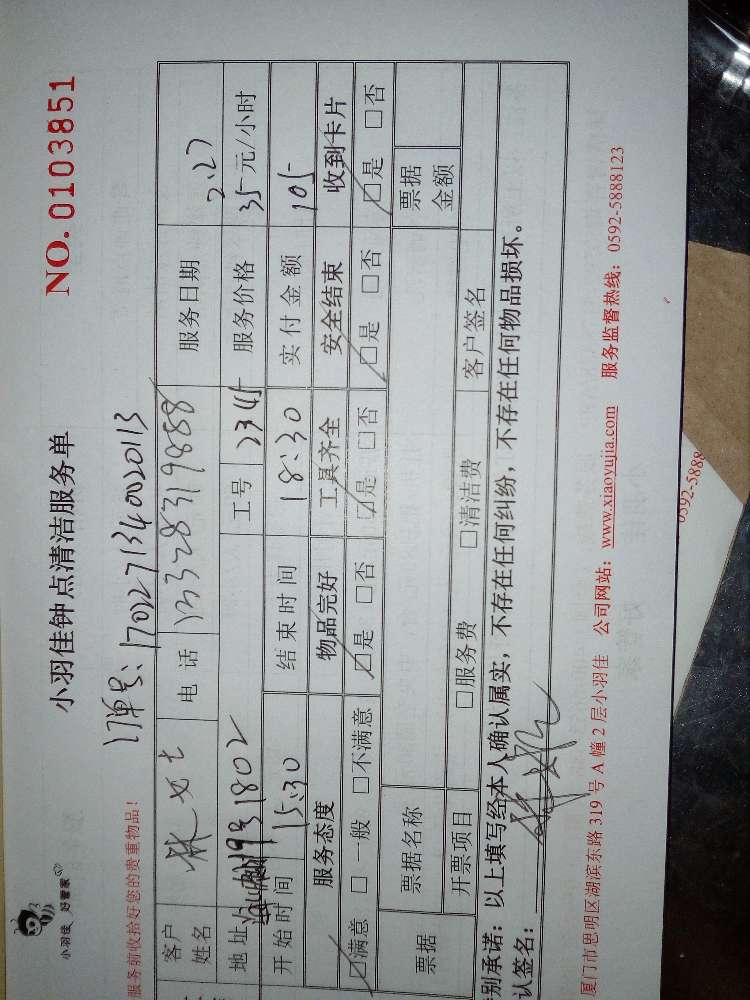 小羽佳 好管家
小羽佳钟点清洁服务单
NO. 0103851
订单号:1702271340020113
服务前收拾好您的贵重物品!
客户姓名 林女士 电话 13328319888 服务日期 2.27
地址 19#1802 工号 2345 服务价格 35元/小时
开始时间 15:30 结束时间 18:30 实付金额 105
服务态度 物品完好 工具齐全 安全结束 收到卡片
☑满意 □一般 □不满意 ☑是 □否 ☑是 □否 ☑是 □否 ☑是 □否
票据 票据名称 票据金额
开票项目 □服务费 □清洁费 客户签名
别承诺:以上填写经本人确认属实,不存在任何纠纷,不存在任何物品损坏。
认签名:
厦门市思明区湖滨东路 319 号 A 幢 2 层小羽佳 公司网站:www.xiaoyujia.com 服务监督热线:0592-5888123
0592-5888